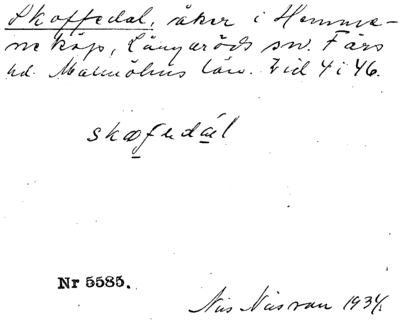 Skoffedal, åker i Hemma-
neköp, Långaröds sn. Färs
hd. Malmöhus län. Eid 4 i 46.
skofudál
Nr 5585.
Nils Nilsson 1934.